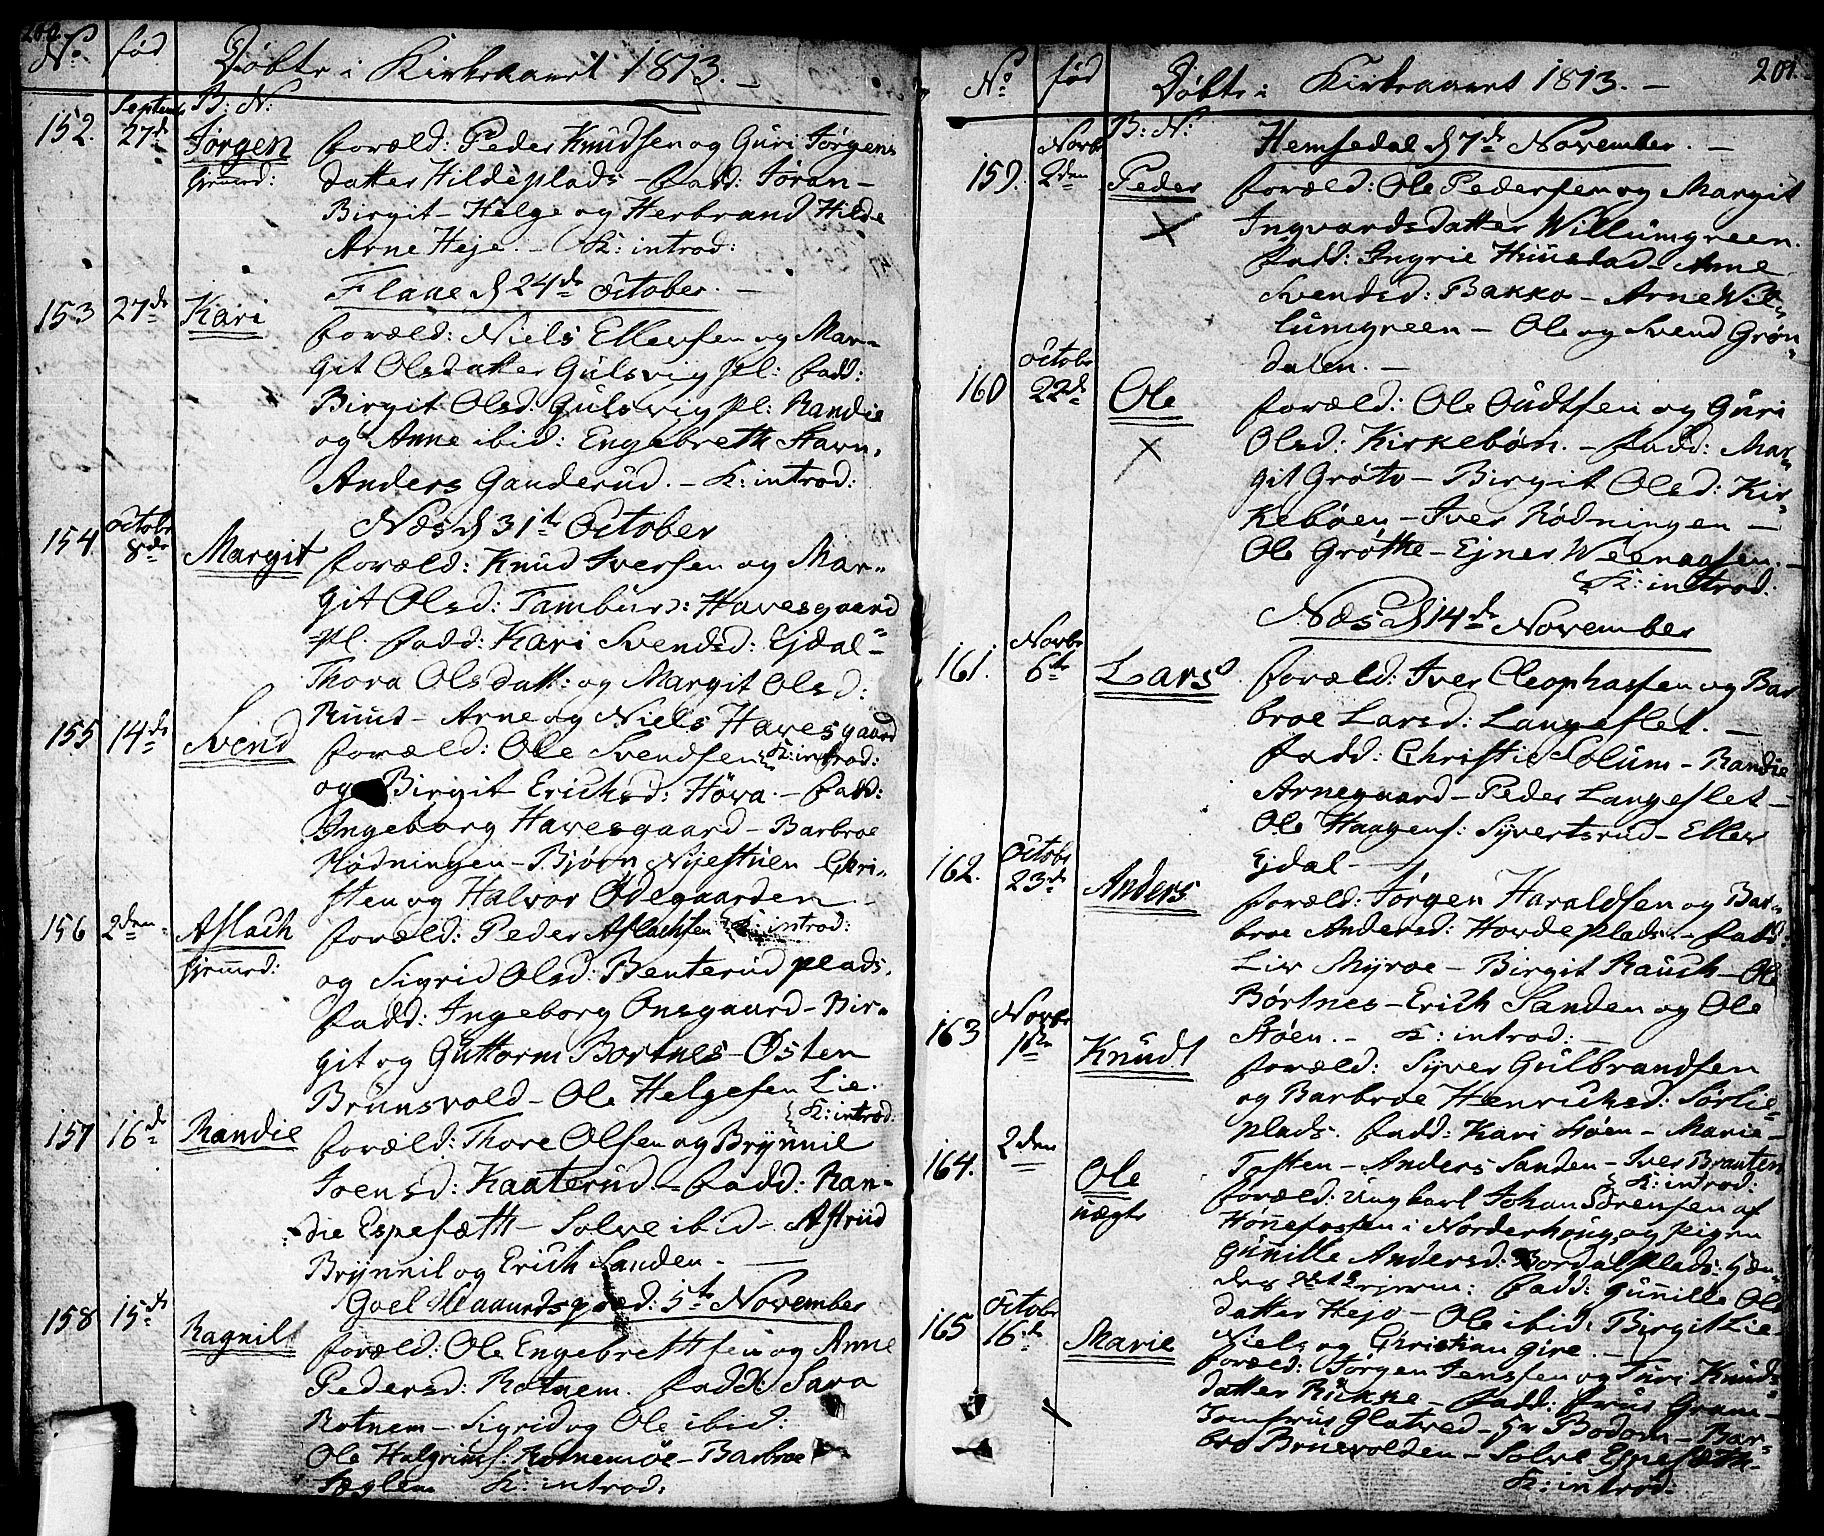 200.
No fød Døbte i Kirkeaaret 1813. –
Septembr B: N:
152. 27de Jørgen foræld: Peder Knudsen og Guri Jørgens
hjemed: datter Hilde plads – fadd: Jøran –
Birgit – Helge og Herbrand Hilde
Arne Heje. – K: introd:
Flaae d 24de October. –
153 27de Kari
foræld: Niels Ellevsen og Mar-
git Olsdatter Gulsvig pl: fadd:
Birgit Olsd: Gulsvig pl: Randie
og Anne ibid: Engebreth Stavn,
Anders Ganderud. – K: introd:
Næs d 31te October
154 Octobr 8de Margit
foræld: Knud Iversen og Mar-
git Olsd: Tambur: Havesgaard
pl. fadd: Kari Svendsd: Ejdal –
Thora Olsdatt: og Margit Olsd:
Ruud – Arne og Niels Havesgaard
K: introd:
155 14de Svend foræld: Ole Svendsen
og Birgit Erichsd: Høva. – fadd:
Ingeborg Havesgaard – Barbroe
Rødningen – Bjørn Nijestuen Chri-
sten og Halvor Ødegaarden –
K: introd:
156 2den Aslach foræld: Peder Aslachsen
hjemed: og Sigrid Olsd: Benterud plads.
fadd: Ingeborg Onsgaard – Bir-
git og Guttorm Bortnes – Østen
Brunsvold – Ole Helgesen Lie.
K: introd:
157 16de Randie foræld: Thore Olsen og Brynnil
Joensd: Kaaterud. – fadd: Ran-
die Espesæth – Solve ibid – Astrud
Brynnil og Erich Sanden. –
Goel Maaundspræd: 5te November
158 15de Ragnil
foræld: Ole Engebrethsen og Anne
Pedersd: Rotnem. fadd: Sara
Rotnem – Sigrid og Ole ibid:
Ole Halgrims: Rotnemøe – Barbroe
K: introd:
No fød Døbte i Kirkeaaret 1813. – 201.
B: N:
Hemsedal d 7de November. –
159. Novbr 2den Peder foræld: Ole Pedersen og Margit
Ingvardsdatter Willumgreen.
fadd: Ingrie Huustad – Anne
Svendsd: Bakko – Arne Wil-
lumgreen – Ole og Svend Grøn-
dalen. –
160 Octobr 22de Ole foræld: Ole Oudtsen og Guri
Olsd: Kirkebøn. – fadd: Mar-
git Grøto – Birgit Olsd: Kir-
kebøen – Iver Rødningen –
Ole Grøthe – Ejner Weenaasen. –
K: introd.
Næs d 14de November
161. Novbr 6te Lars foræld: Iver Cleophassen og Bar-
broe Larsd: Langeslet. –
fadd: Christie Solum – Randie
Arnegaard – Peder Langeslet –
Ole Haagens: Syvertsrud – Ellev
Ejdal –
162. Octobr 23de Anders foræld: Jørgen Haraldsen og Bar-
broe Andersd: Hovde plads. – fadd:
Liv Myroe – Birgit Rauch – Ole
Børtnes – Erich Sanden og Ole
Støen. – K: introd: –
163 Novbr 1te Knudt
foræld: Syver Gulbrandsen
og Barbroe Henrichsd: Sørlie-
plads. fadd: Kari Støen – Marie –
Tosten – Anders Sanden – Iver Braaten
K: introd:
164. 2den Ole
uægte
foræld: Ungkarl Johan Sørensen af
Hønnefossen i Norderhoug, og Pigen
Gunille Andersd: Bordal plads:
fadd: Gunille Ols
datter Hejo – Ole ibid: Birgit Lie –
Niels og Christian Gire. –
165 Octobr 16de Marie
foræld: Jørgen Jenssen og Turi Knuds-
datter Rukke – fadd: Frue Gram –
Jomfrue Glatved – Hr Bodom – Bar-
bro Brusvolden – Solve Espesæth.
K: introd.